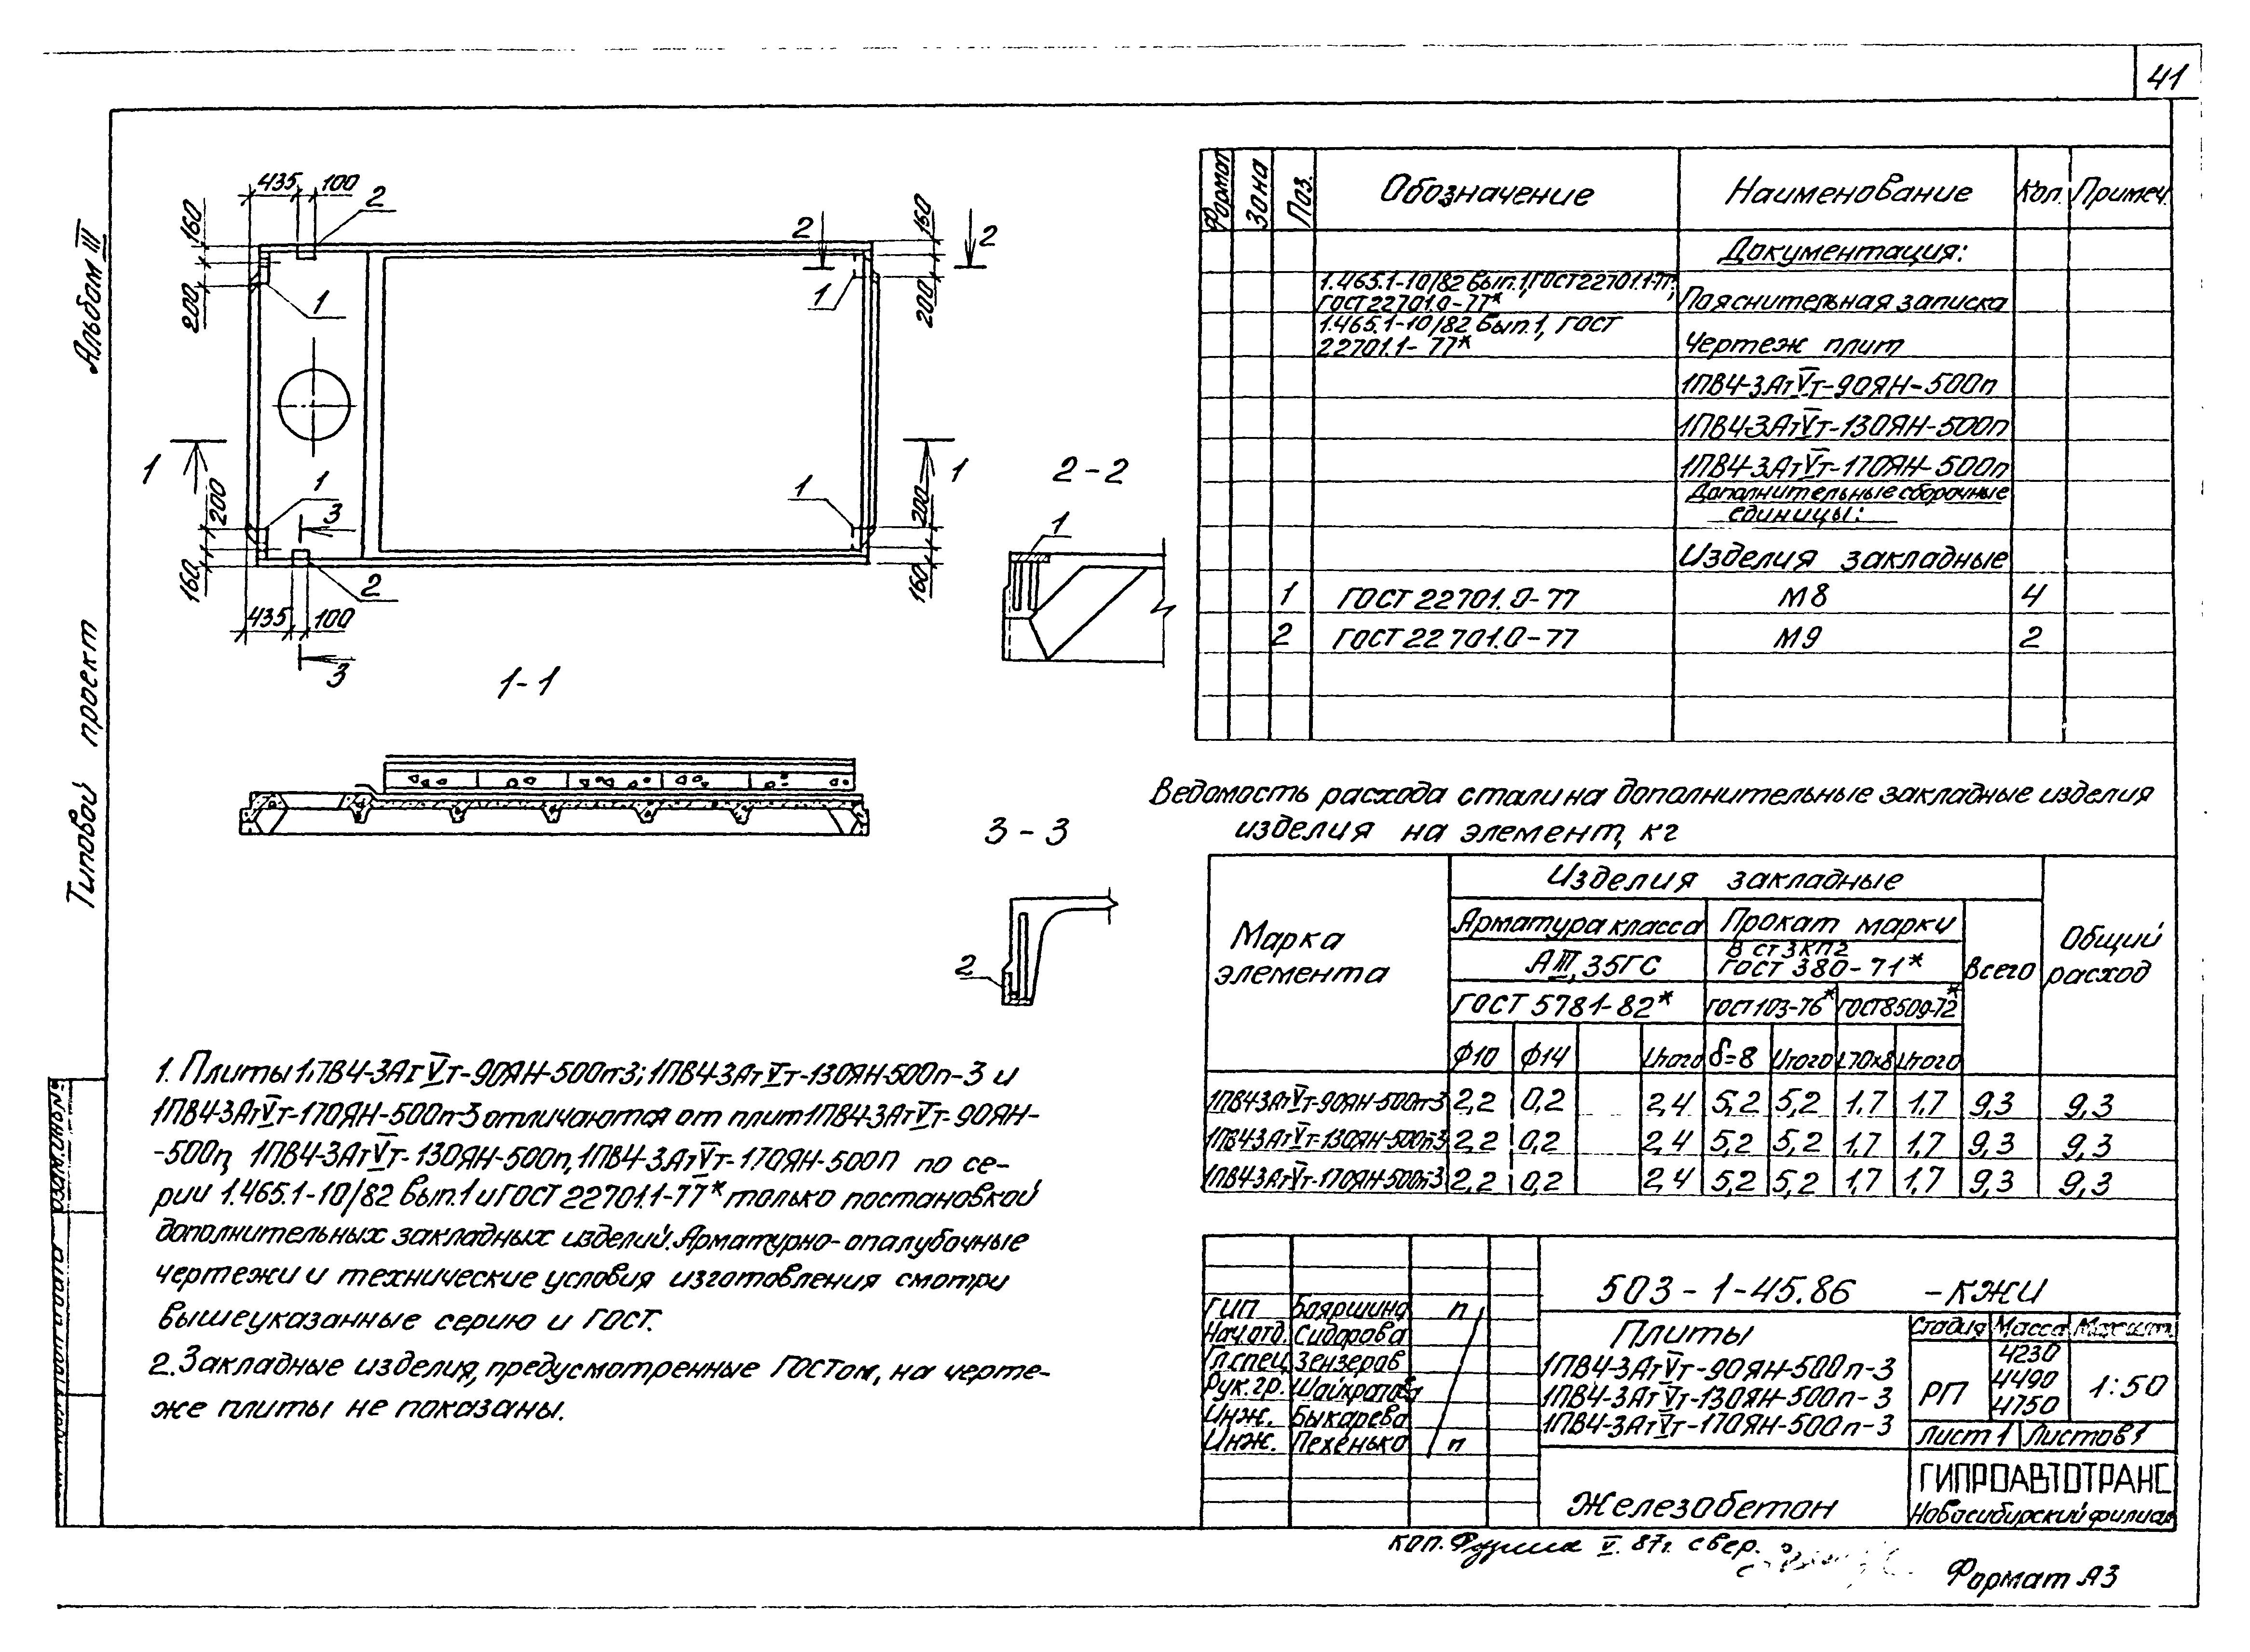 41
Альбом III
Типовой проект
435 100 2
160
200
1
2 2
160
200
1
1 1
200
160
3
2
435 100
3
1
200
160
1-1
2-2
1
3-3
2
Формат Зона Поз. Обозначение Наименование Кол. Примеч.
Документация:
1.465.1-10/82 вып.1, ГОСТ 22701.1-77*;
ГОСТ 22701.0-77* Пояснительная записка
1.465.1-10/82 вып.1, ГОСТ
22701.1-77* Чертеж плит
1ПВ4-3АтVт-90ЯН-500п
1ПВ4-3АтVт-130ЯН-500п
1ПВ4-3АтVт-170ЯН-500п
Дополнительные сборочные
единицы:
Изделия закладные
1 ГОСТ 22701.0-77 М8 4
2 ГОСТ 22701.0-77 М9 2
Ведомость расхода стали на дополнительные закладные изделия
изделия на элемент, кг
Марка элемента
Изделия закладные
Общий расход
Арматура класса Прокат марки
Всего
АIII, 35ГС В ст3кп2 ГОСТ 380-71*
ГОСТ 5781-82* ГОСТ103-76* ГОСТ8509-72*
ф10 ф14 Итого δ=8 Итого L70х8 Итого
1ПВ4-3АтVт-90ЯН-500п-3 2,2 0,2 2,4 5,2 5,2 1,7 1,7 9,3 9,3
1ПВ4-3АтVт-130ЯН-500п-3 2,2 0,2 2,4 5,2 5,2 1,7 1,7 9,3 9,3
1ПВ4-3АтVт-170ЯН-500п-3 2,2 0,2 2,4 5,2 5,2 1,7 1,7 9,3 9,3
1. Плиты 1ПВ4-3АтVт-90ЯН-500п-3; 1ПВ4-3АтVт-130ЯН-500п-3 и
1ПВ4-3АтVт-170ЯН-500п-3 отличаются от плит 1ПВ4-3АтVт-90ЯН-
-500п, 1ПВ4-3АтVт-130ЯН-500п, 1ПВ4-3АтVт-170ЯН-500П по се-
рии 1.465.1-10/82 вып.1 и ГОСТ 22701.1-77* только постановкой
дополнительных закладных изделий. Арматурно-опалубочные
чертежи и технические условия изготовления смотри
вышеуказанные серию и ГОСТ.
2. Закладные изделия, предусмотренные ГОСТом, на черте-
же плиты не показаны.
503-1-45.86 -КЖИ
ГИП Бояршина п
Нач.отд. Сидорова
Гл.спец Зензеров
Рук.гр. Шайхратова
Инж. Быкарева
Инж. Пехенько п
Плиты
1ПВ4-3АтVт-90ЯН-500п-3
1ПВ4-3АтVт-130ЯН-500п-3
1ПВ4-3АтVт-170ЯН-500п-3
Стадия Масса Масшт.
РП 4230 4490 4750 1:50
Лист 1 Листов 1
Железобетон
ГИПРОАВТОТРАНС
Новосибирский филиал
коп. V. 87г. свер.
Формат А3